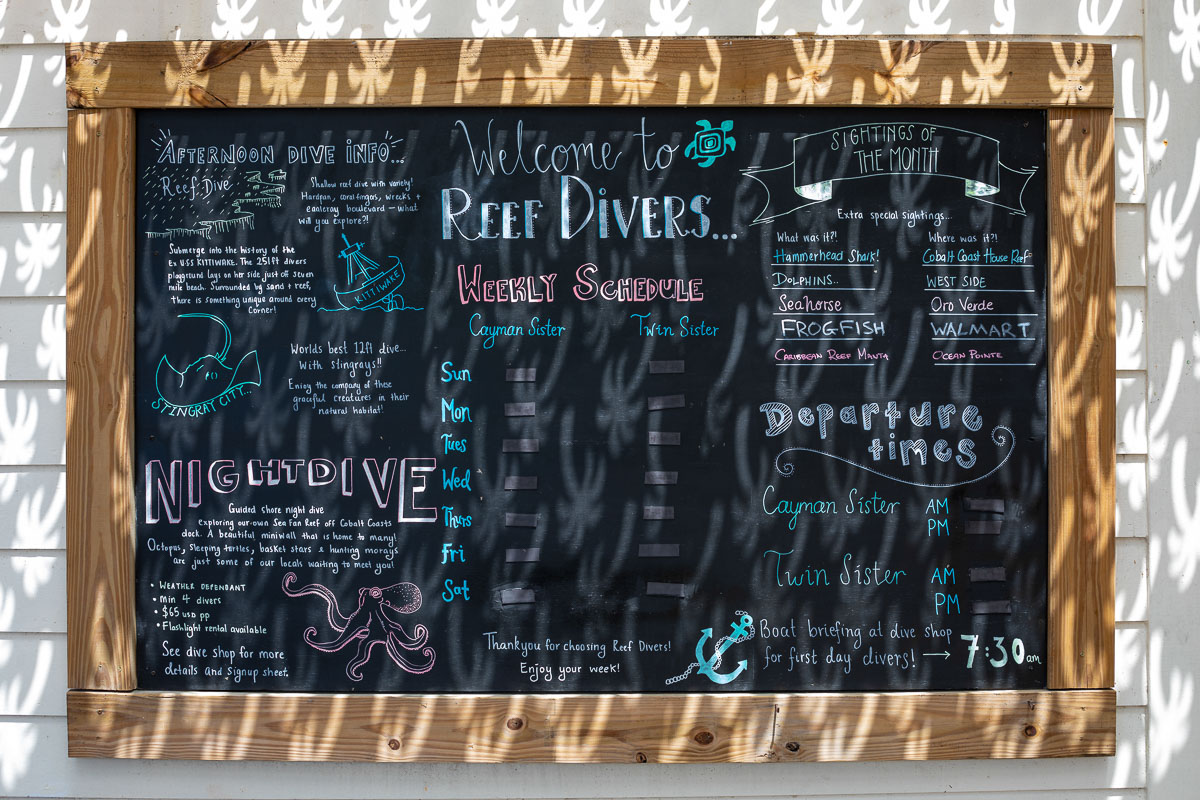 AFTERNOON DIVE INFO...
Reef Dive
Shallow reef dive with variety!
Hardpan, coral fingers, wrecks +
eagleray boulevard - what
will you explore?!
Submerge into the history of the
Ex USS KITTIWAKE. The 251ft divers
playground lays on her side just off seven
mile beach. Surrounded by sand + reef,
there is something unique around every
corner!
KITTIWAKE
STINGRAY CITY...
Worlds best 12ft dive...
With stingrays!!
Enjoy the company of these
graceful creatures in their
natural habitat!
NIGHTDIVE
Guided shore night dive
exploring our own Sea Fan Reef off Cobalt Coasts
dock. A beautiful miniwall that is home to many!
Octopus, sleeping turtles, basket stars & hunting morays
are just some of our locals waiting to meet you!
• WEATHER DEPENDANT
• Min 4 divers
• $65 USD pp
• Flashlight rental available
See dive shop for more
details and signup sheet.
Welcome to
REEF DIVERS...
WEEKLY SCHEDULE
Cayman Sister
Twin Sister
Sun
Mon
Tues
Wed
Thurs
Fri
Sat
Thankyou for choosing Reef Divers!
Enjoy your week!
SIGHTINGS OF
THE MONTH
Extra special sightings...
What was it?! Where was it?!
Hammerhead Shark! Cobalt Coast House Reef
DOLPHINS.. WEST SIDE
Seahorse Oro Verde
FROGFISH WALMART
CARIBBEAN REEF MANTA OCEAN POINTE
Departure
times
Cayman Sister AM
PM
Twin Sister AM
PM
Boat briefing at dive shop
for first day divers! → 7:30am